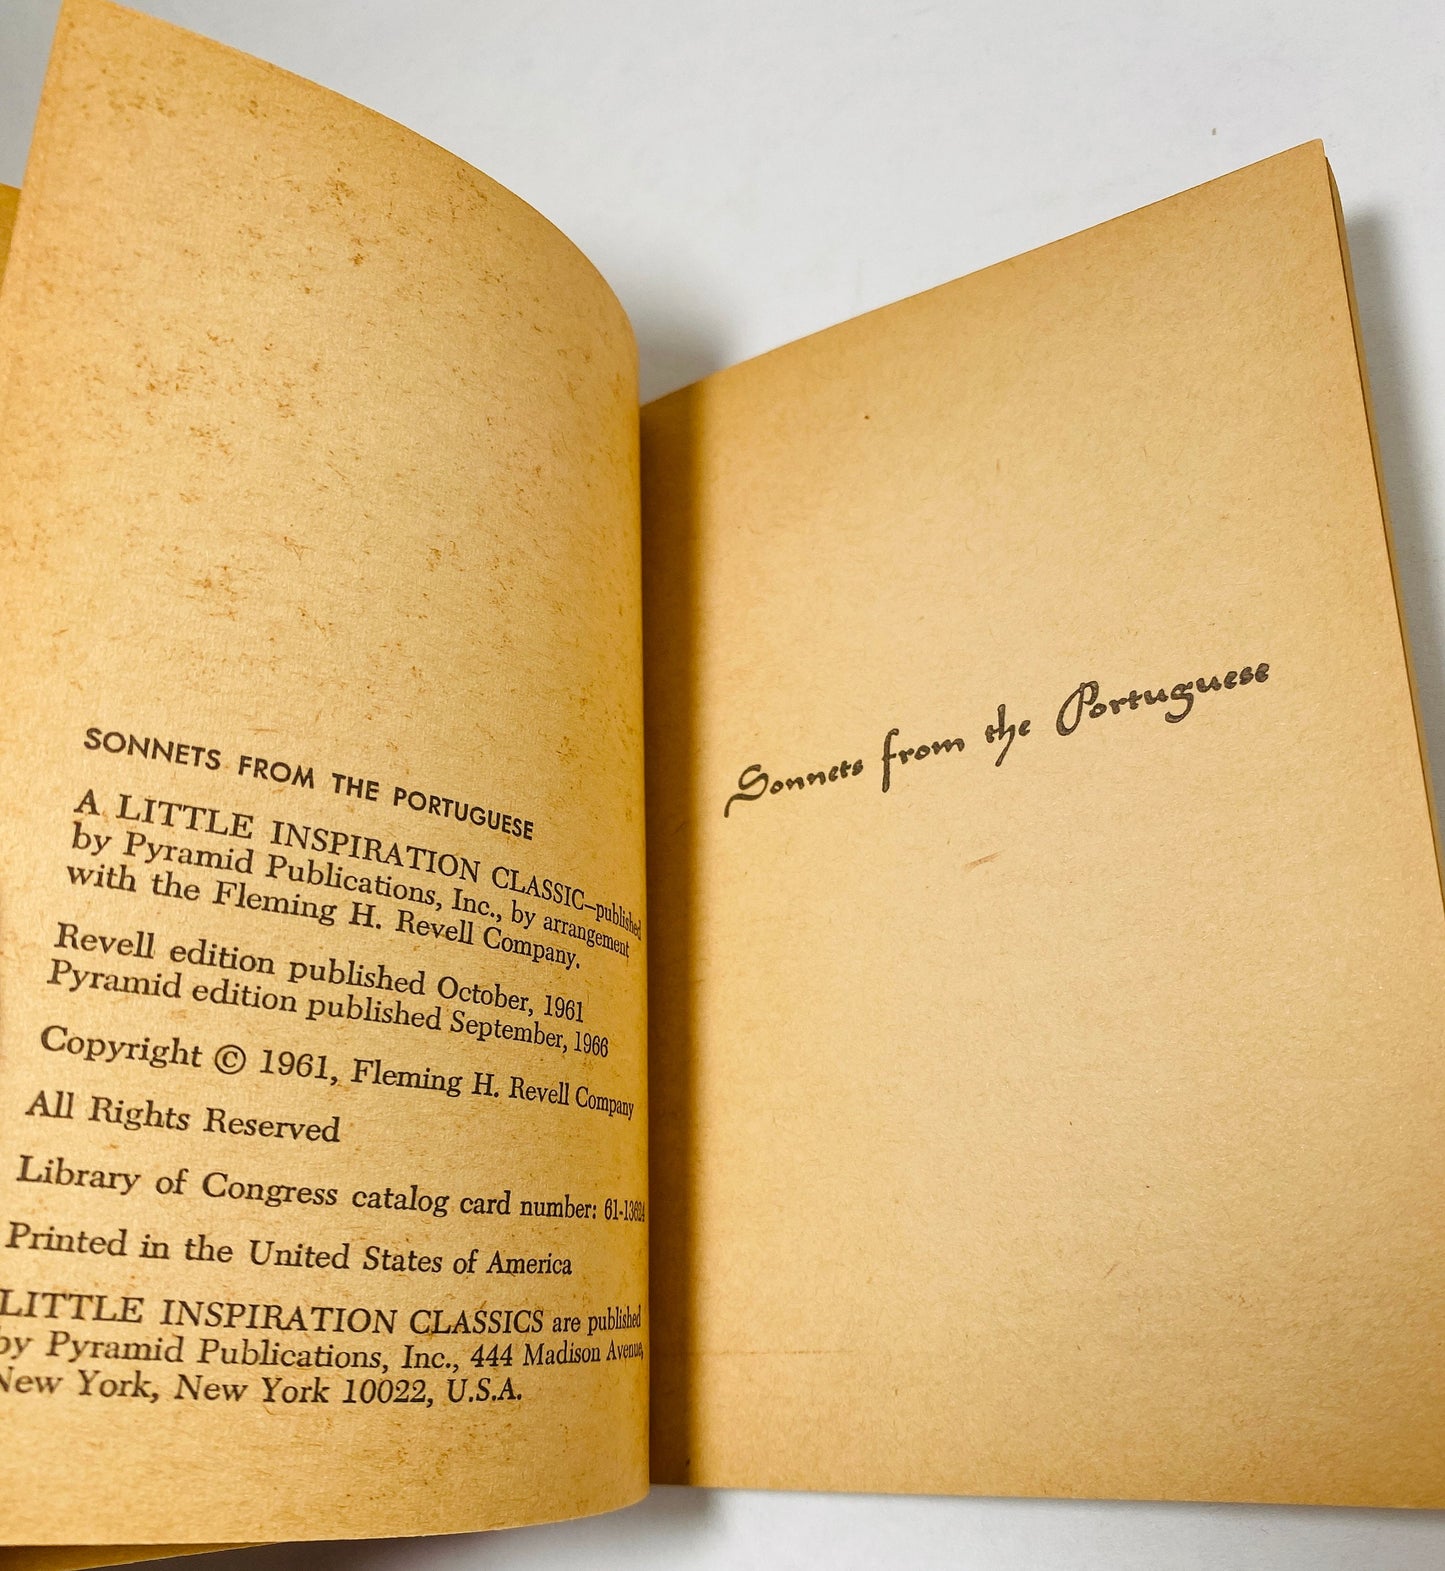 SONNETS FROM THE PORTUGUESE
A LITTLE INSPIRATION CLASSIC—published
by Pyramid Publications, Inc., by arrangement
with the Fleming H. Revell Company.
Revell edition published October, 1961
Pyramid edition published September, 1966
Copyright © 1961, Fleming H. Revell Company
All Rights Reserved
Library of Congress catalog card number:
Printed in the United States of America
LITTLE INSPIRATION CLASSICS are published
by Pyramid Publications, Inc., 444 Madison Avenue,
New York, New York 10022, U.S.A.
Sonnets from the Portuguese